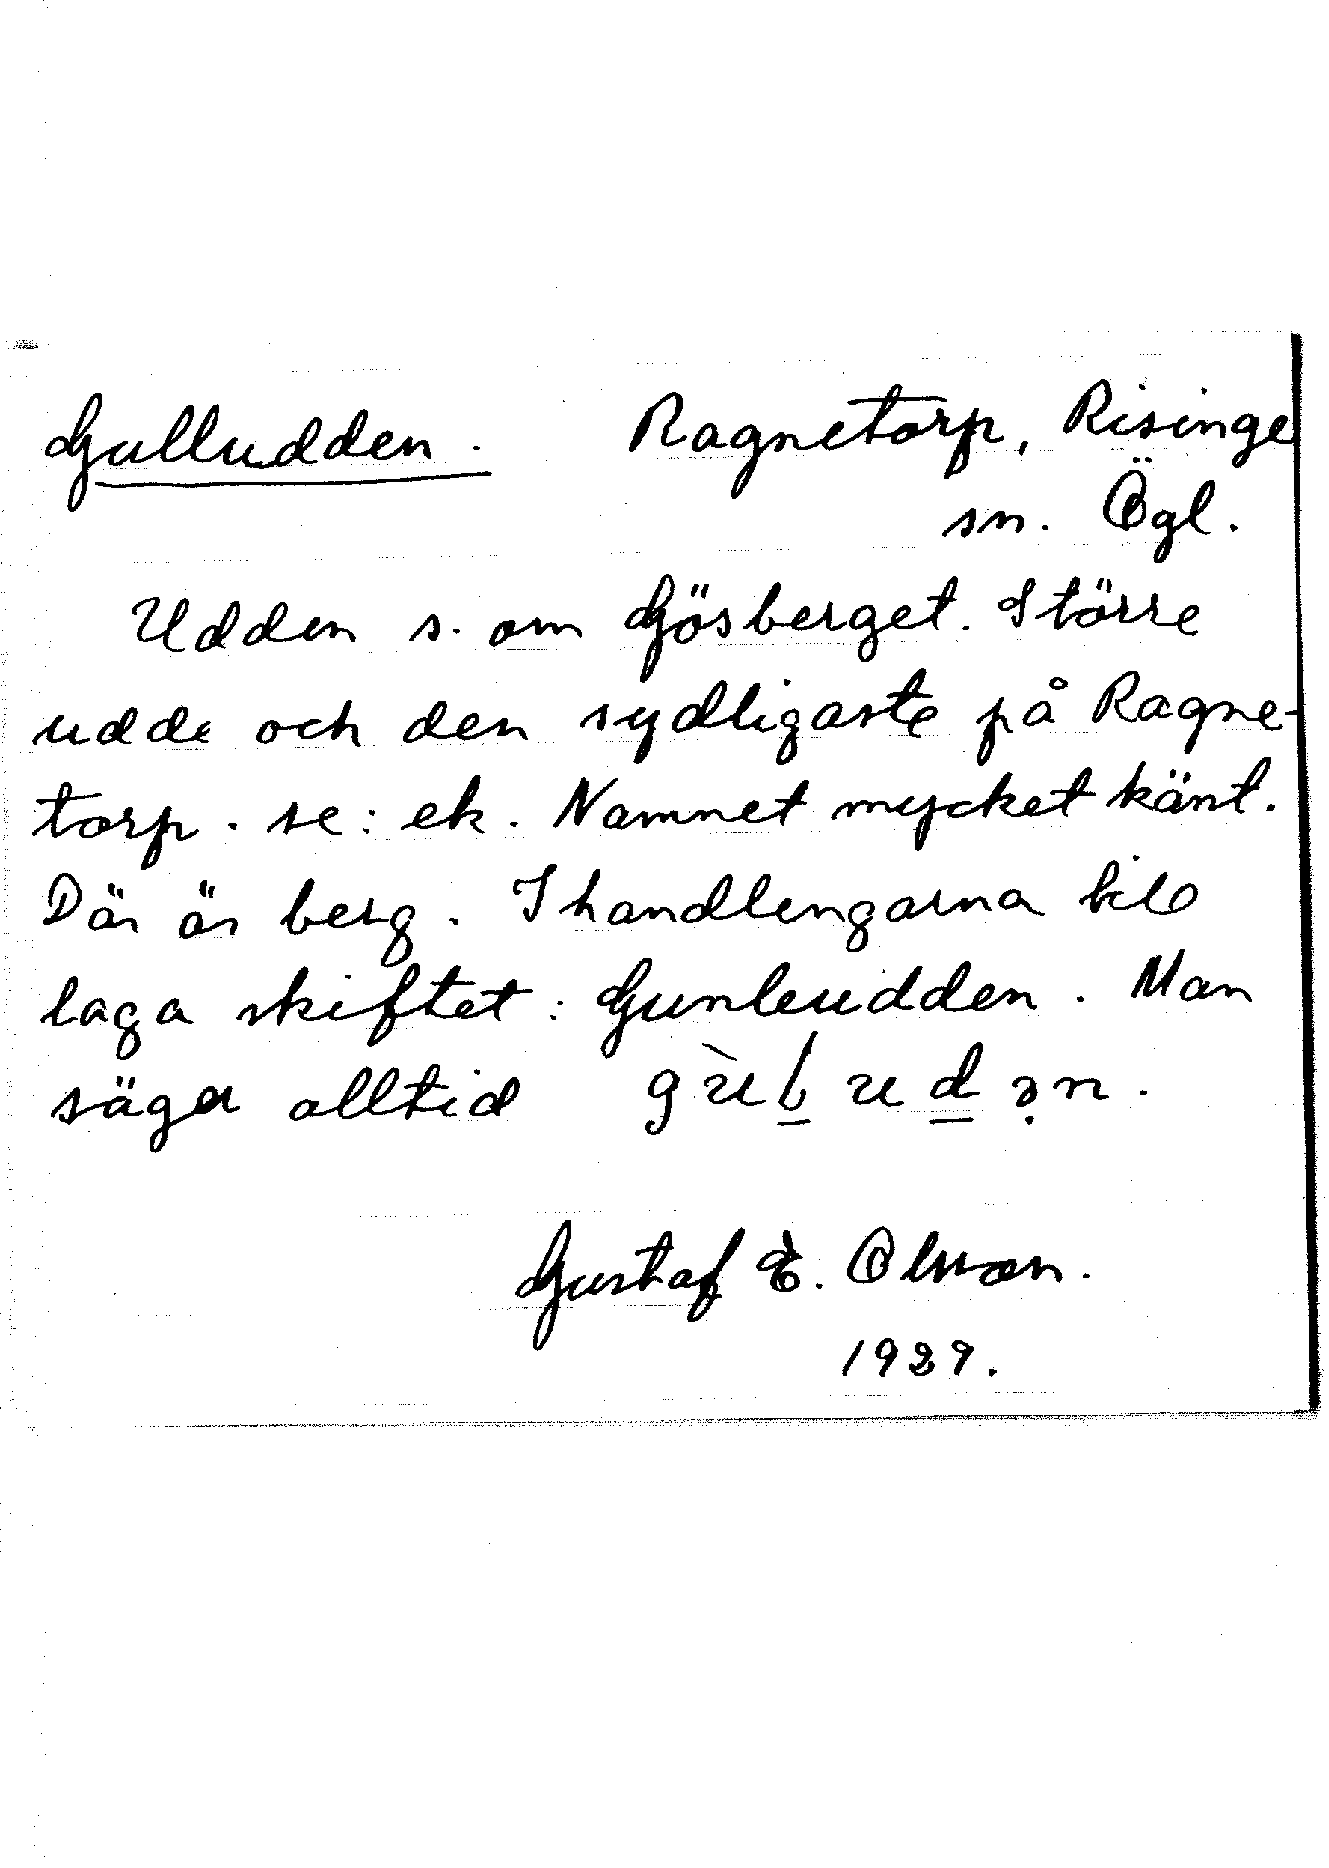 Gulludden. Ragnetorp, Risinge
sn. Ögl.
Udden s. om Gösberget. Större
udde och den sydligaste på Ragne-
torp. se: ek. Namnet mycket känt.
Där är berg. I handlingarna till
laga skiftet: Gunleudden. Man
säger alltid
Gustaf E. Olsson.
1929.